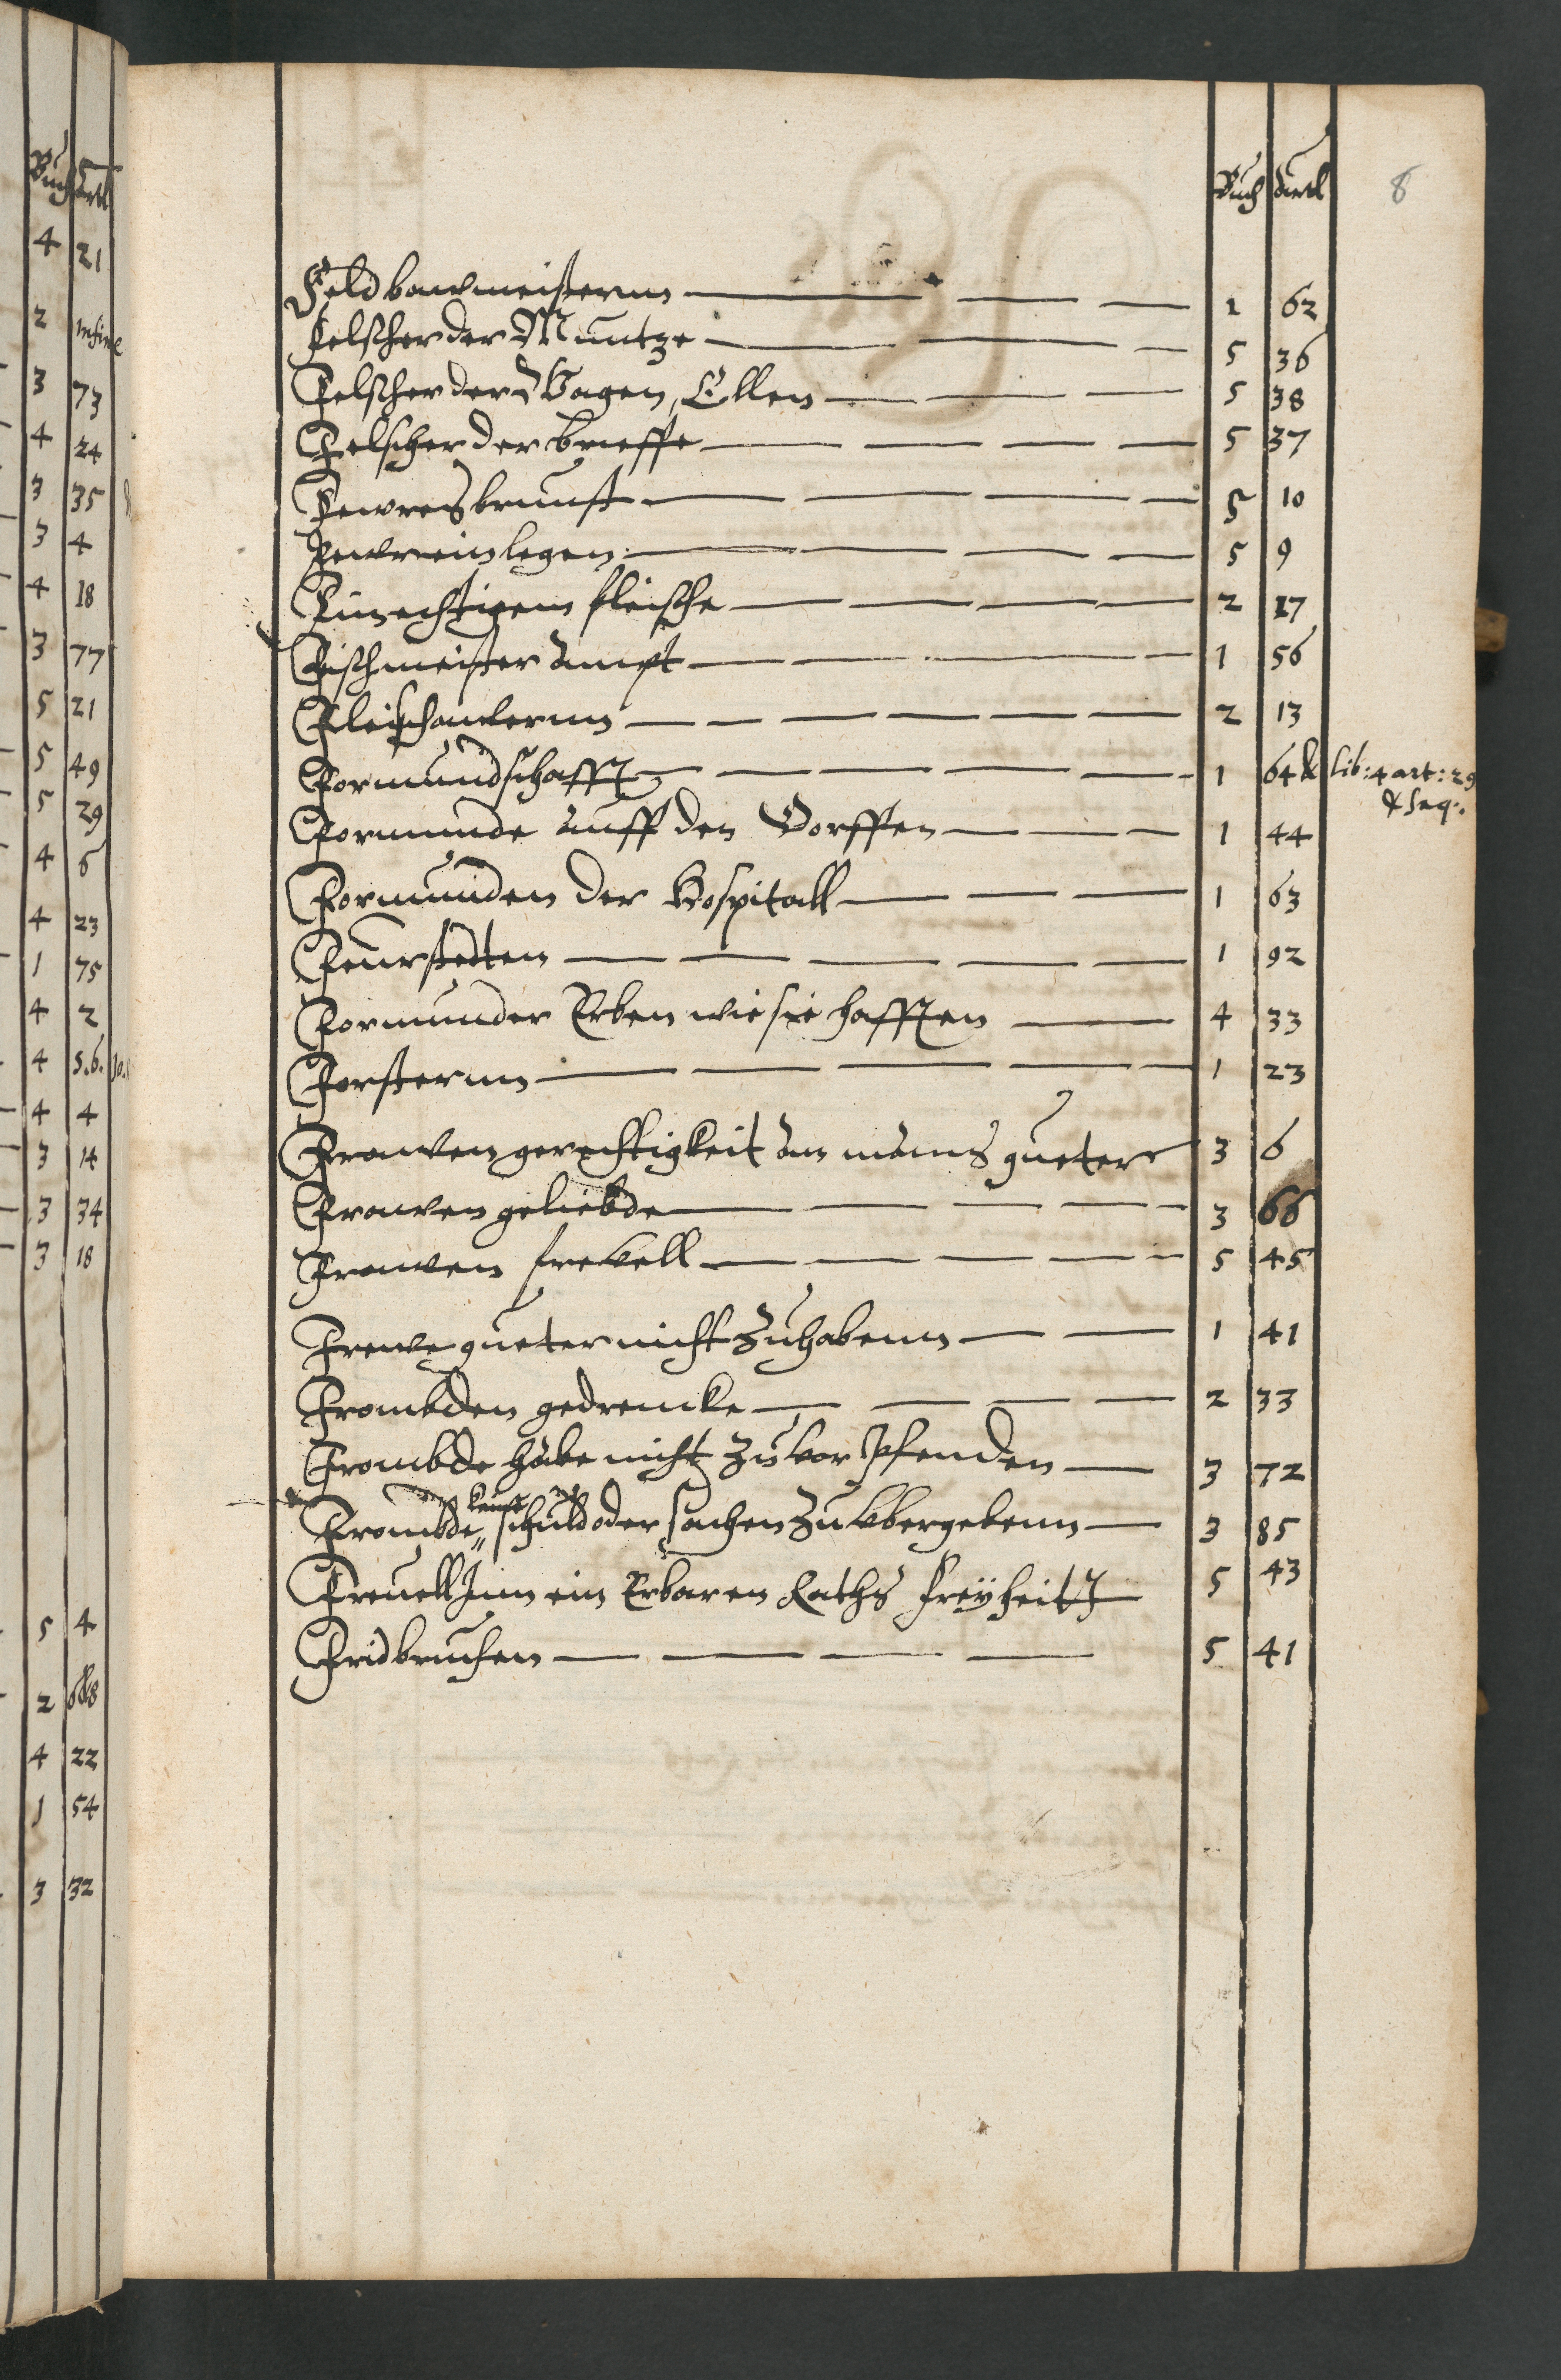 Buch Artl 8
Feldbawmeisterun 1 62
Felscher der Muntze 5 36
Felscher der Wagen, Ellen 5 38
Felscher der brieffe 5 37
Fewresbrunst 5 10
Fewreinlegen 5 9
Finechtigem fleische 2 17
Fischmeister Ampt 1 56
Fleischawern 2 13
Formundschafft 1 64 & lib: 4 art: 29
& seq:
Formunde auff den Dorffen 1 44
Formunden der Hospitall 1 63
Feurstedten 1 92
Formunder Erben wie sie hafften 4 33
Forsterun 1 23
Frawen gerechtigkeit an mans gueter 3 6
Frawen geliebde 3 66
Frawen frevell 5 45
Frewe gueter nicht zuhabenn 1 41
Frombden gedrencke 2 33
Frombde habe nicht zu vor Pfenden 3 72
Frombde schuld oder sachen zu vbergebenn 3 85
Freuell Inn ein Erbaren Raths freyheitt 5 43
Fridbruchen 5 41
Buch Artl
4 21
2 in fine
3 73
4 24
3 35
3 4
4 18
3 77
5 21
5 49
5 29
4 6
4 23
1 75
4 2
4 5.6. 10.
4 4
3 14
3 34
3 18
5 4
2 6&8
4 22
1 54
3 32